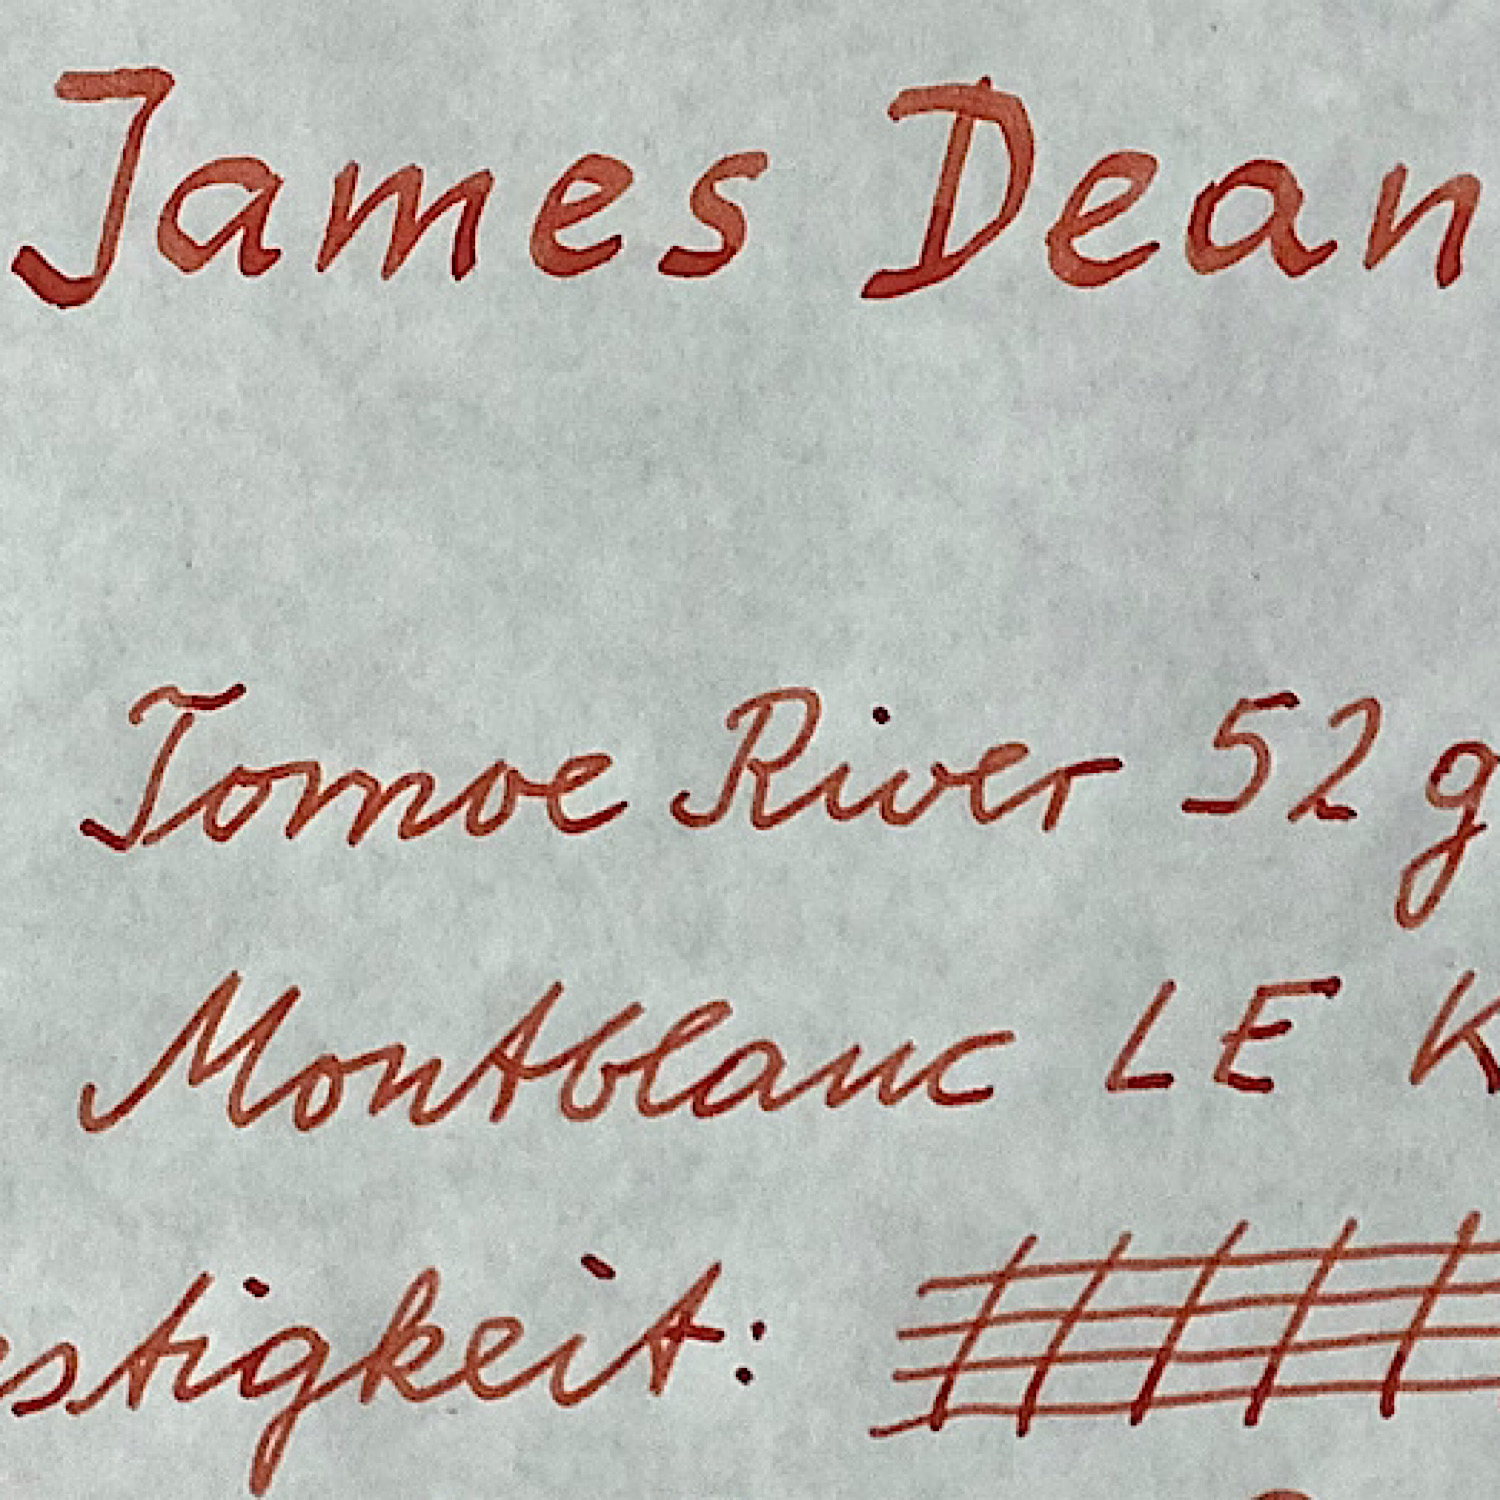 James Dean
Tomoe River 52 g
Montblanc LE K
estigkeit: